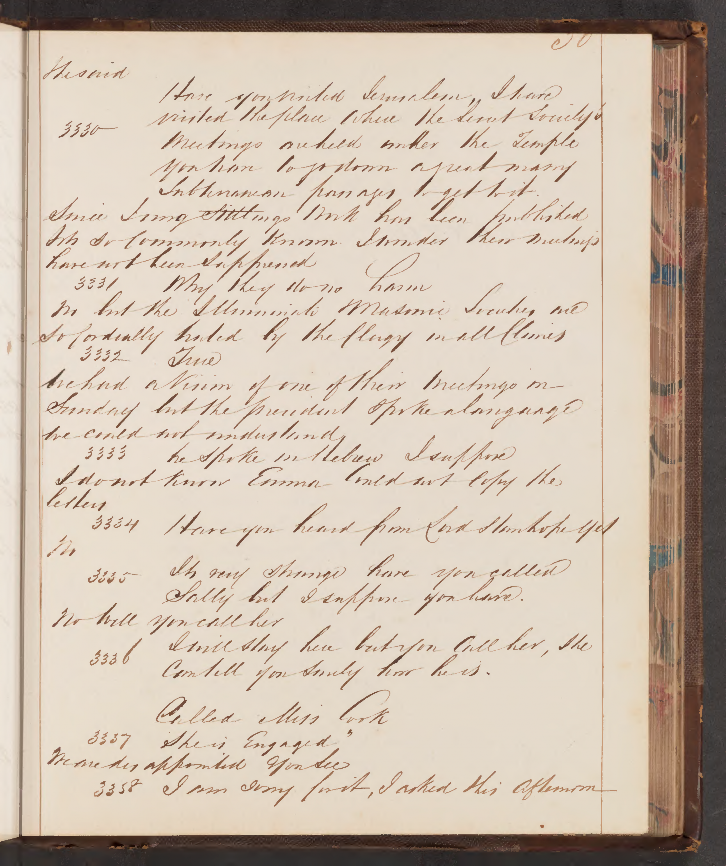 He said
Have you visited Jerusalem, I have
visited the place where the Secret Society's
3330
Meetings are held under the Temple
you have to go down a great many
Subterranean passages to get to it.
Since Jung Stillings Work has been published
Its so Commonly Known I wonder these meetings
have not been suppressed
3331 Why they do no harm
No but the Illuminati Masonic Societies are
So Cordially hated by the Clergy in all Climes
3332 True
We had a Vision of one of their Meetings on
Sunday but the president spoke a language
we could not understand
3333 he spoke in Hebrew I suppose
I do not know Emma Could not Copy the
letters
3334 Have you heard from Lord Stanhope yet
No
3335 Its very strange have you called
Sally but I suppose you have.
No will you call her
3336 I will stay here but you Call her, She
Can tell you surely how he is.
Called Miss Cook
3337 She is Engaged"
We are disappointed You see
3338 I am sorry for it, I asked this afternoon